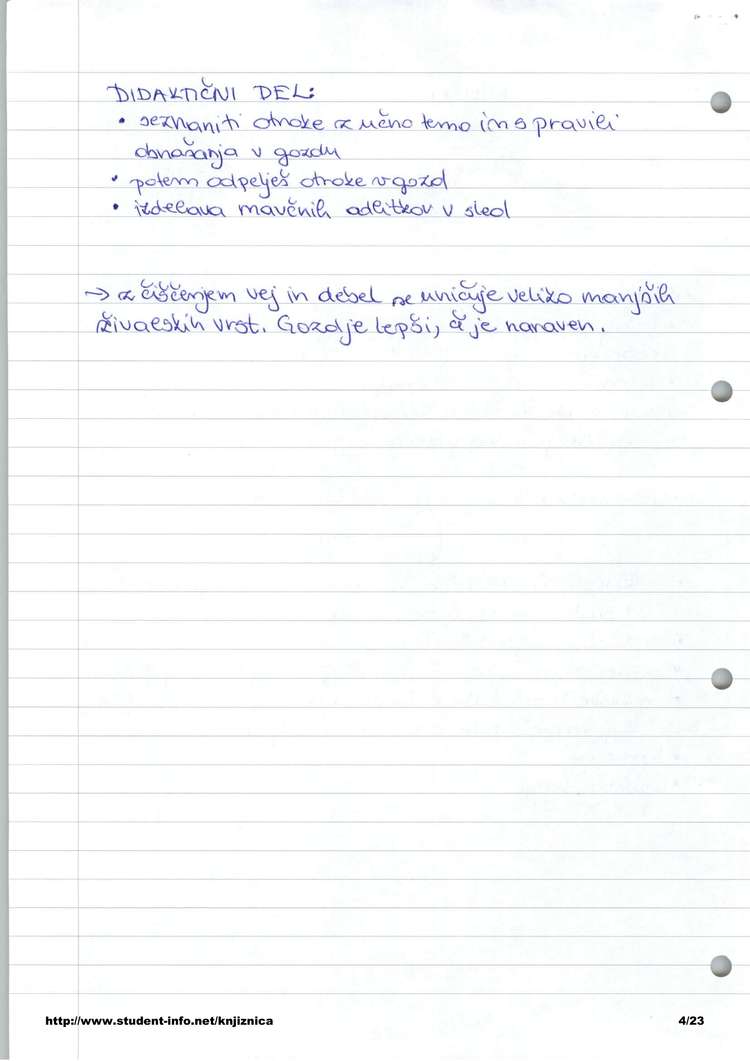 DIDAKTIČNI DEL:
• seznaniti otroke z učno temo in s pravili
obnašanja v gozdu
• potem odpelješ otroke v gozd
• izdelava mavčnih odlitkov v sled
→ z čiščenjem vej in debel se uničuje veliko manjših
živalskih vrst. Gozd je lepši, č je naraven.
http://www.student-info.net/knjiznica
4/23